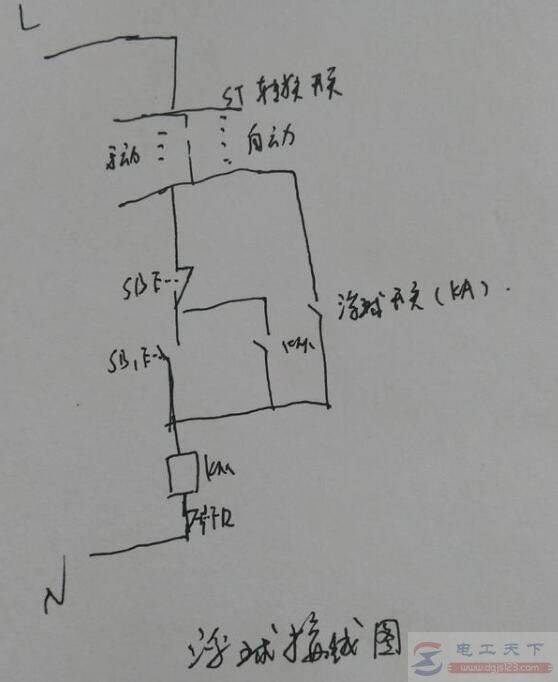 L
ST 转换开关
手动
自动
SB E--
浮球开关(KA).
SB1 E--
KM1
KM
FR
N
浮球接线图
电工天下
www.dgjs123.com